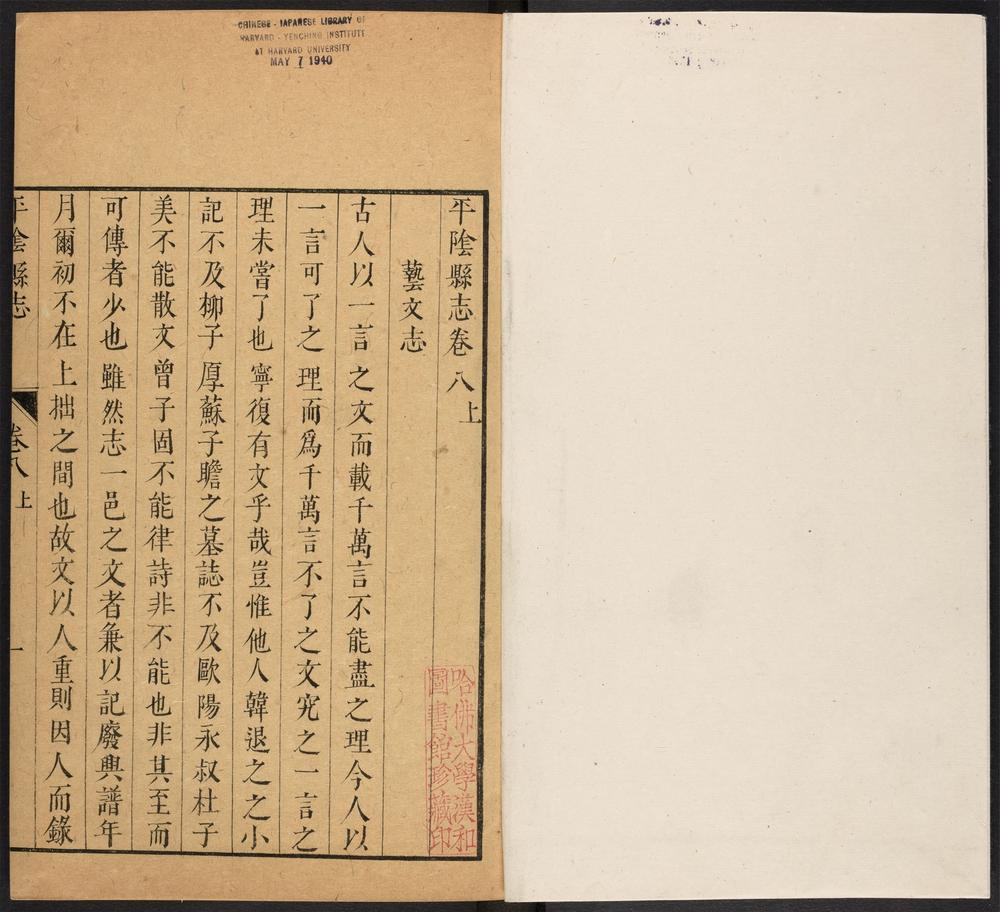 CHINESE - JAPANESE LIBRARY OF
HARVARD - YENCHING INSTITUTE
AT HARVARD UNIVERSITY
MAY 7 1940
平陰縣志卷八上
藝文志
古人以一言之文而載千萬言不能盡之理今人以
一言可了之理而爲千萬言不了之文究之一言之
理未嘗了也寧復有文乎哉豈惟他人韓退之之小
記不及柳子厚蘇子瞻之墓誌不及歐陽永叔杜子
美不能散文曾子固不能律詩非不能也非其至而
可傳者少也雖然志一邑之文者兼以記廢興譜年
月爾初不在工拙之間也故文以人重則因人而錄
平陰縣志
卷八上
一
哈佛大學漢和
圖書館珍藏印